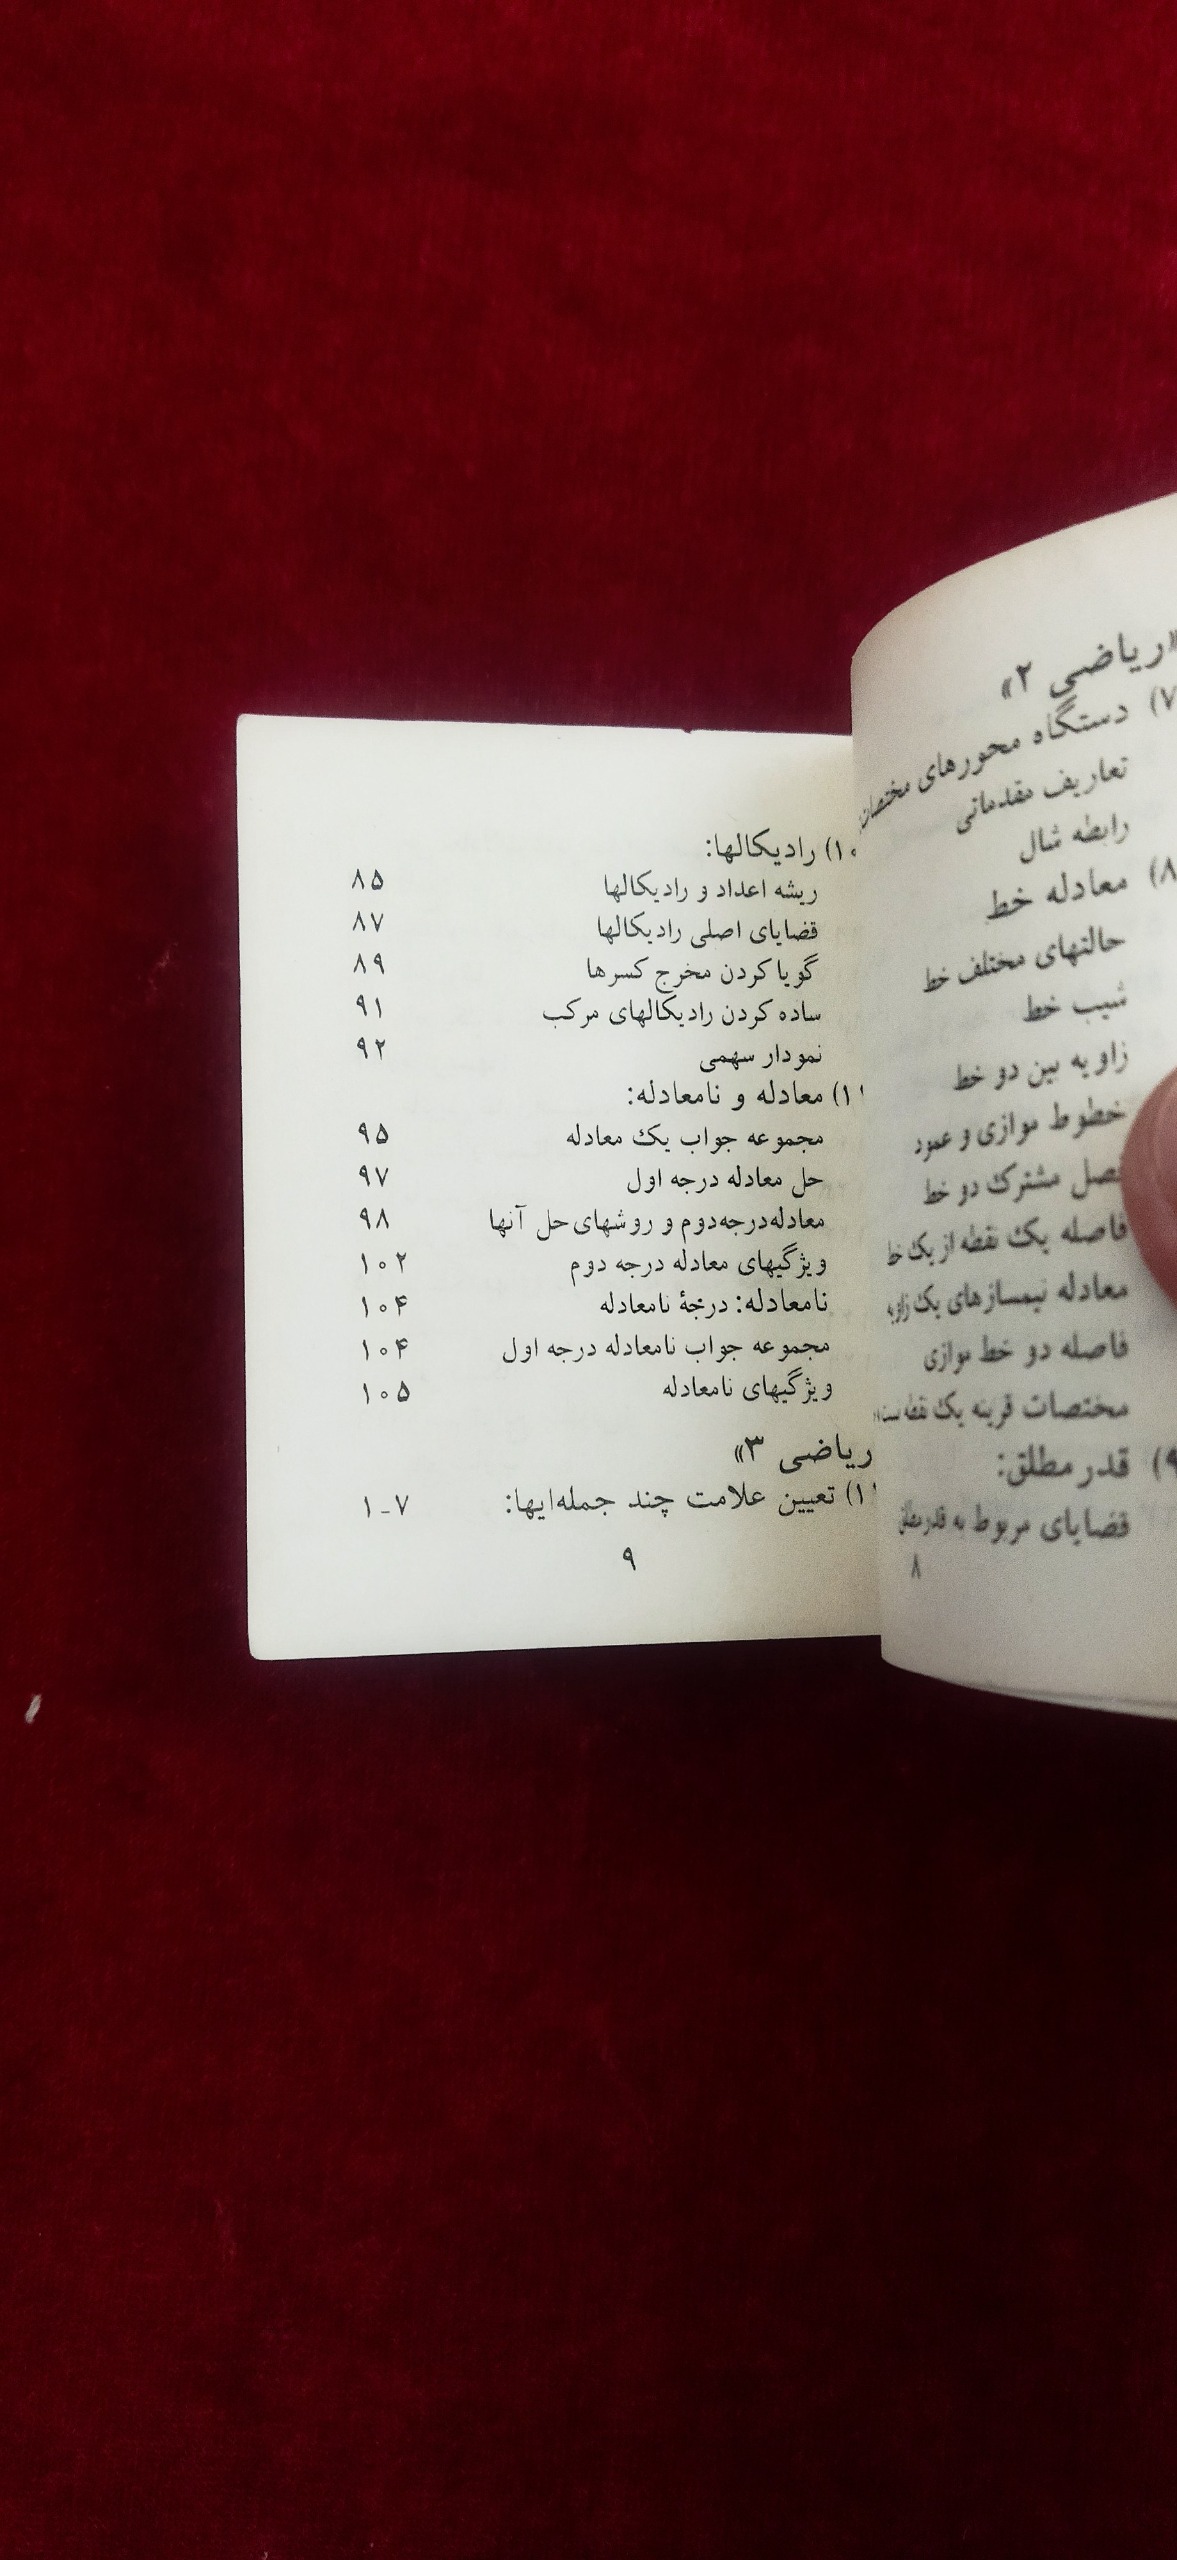 «ریاضی ۲»
۷) دستگاه محورهای مختصات
تعاریف مقدماتی
رابطه شال
۸) معادله خط
حالتهای مختلف خط
شیب خط
زاویه بین دو خط
خطوط موازی و عمود
فصل مشترک دو خط
فاصله یک نقطه از یک خط
معادله نیمسازهای یک زاویه
فاصله دو خط موازی
مختصات قرینه یک نقطه
۹) قدر مطلق:
قضایای مربوط به قدرمطلق
۸
۱۰) رادیکالها:
ریشه اعداد و رادیکالها ۸۵
قضایای اصلی رادیکالها ۸۷
گویا کردن مخرج کسرها ۸۹
ساده کردن رادیکالهای مرکب ۹۱
نمودار سهمی ۹۲
۱۱) معادله و نامعادله:
مجموعه جواب یک معادله ۹۵
حل معادله درجه اول ۹۷
معادله‌درجه‌دوم و روشهای‌حل آنها ۹۸
ویژگیهای معادله درجه دوم ۱۰۲
نامعادله: درجهٔ نامعادله ۱۰۴
مجموعه جواب نامعادله درجه اول ۱۰۴
ویژگیهای نامعادله ۱۰۵
ریاضی ۳»
تعیین علامت چند جمله‌ایها: ۱-۷
۹